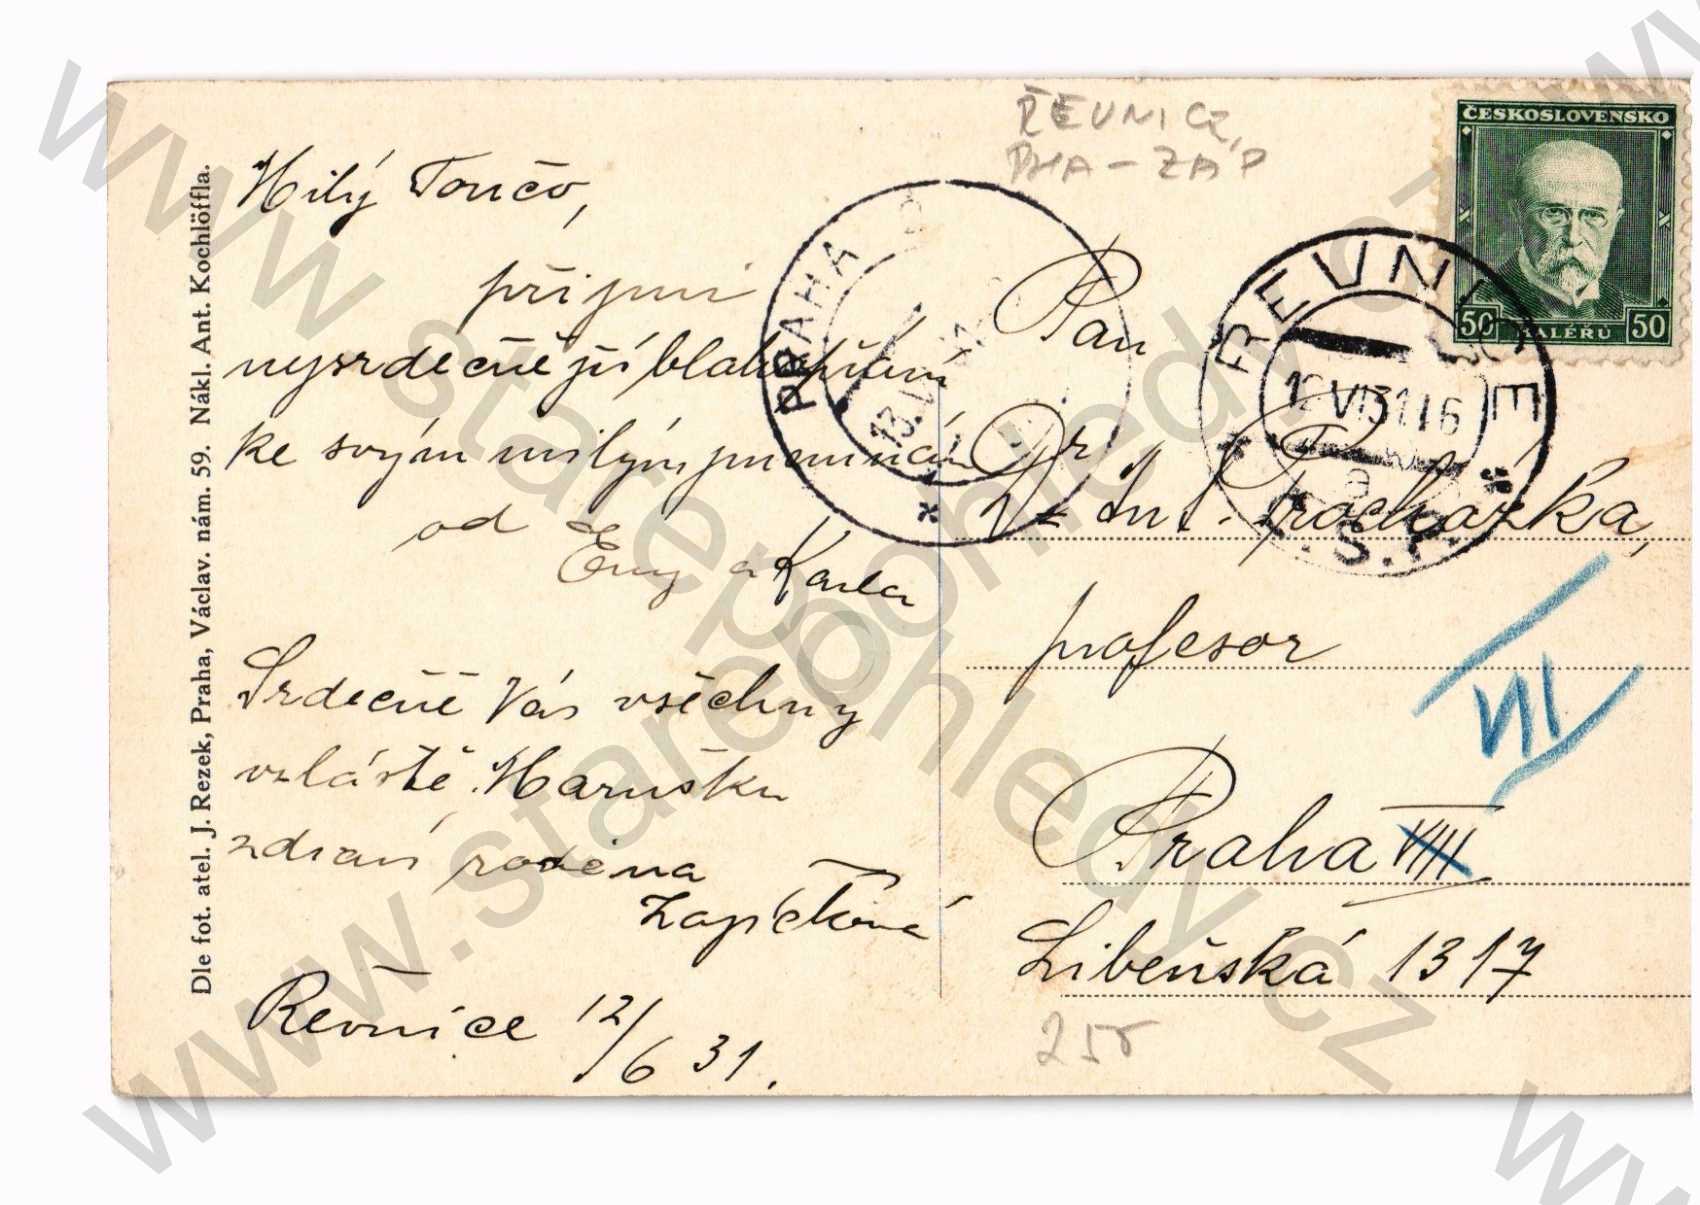 Dle fot. atel. J. Rezek, Praha, Václav. nám. 59. Nákl. Ant. Kochlöffla.
Milý Toučo,
přijmi
nejsrdečnější blahopřání
ke svým milým
od Emy a Karla
Srdečně Vás všechny
vzláště Marušku
zdraví rodina
Řevnice 12/6 31.
ŘEVNICE,
PHA-ZÁP
ČESKOSLOVENSKO
50 HALÉŘŮ 50
PRAHA
13.V
ŘEVNICE
12 VI 31 16
Pan
Dr Ant. Procházka,
profesor
VII
Praha VIII
Libeňská 1317
www.starepohledy.cz
www.starepohledy.cz